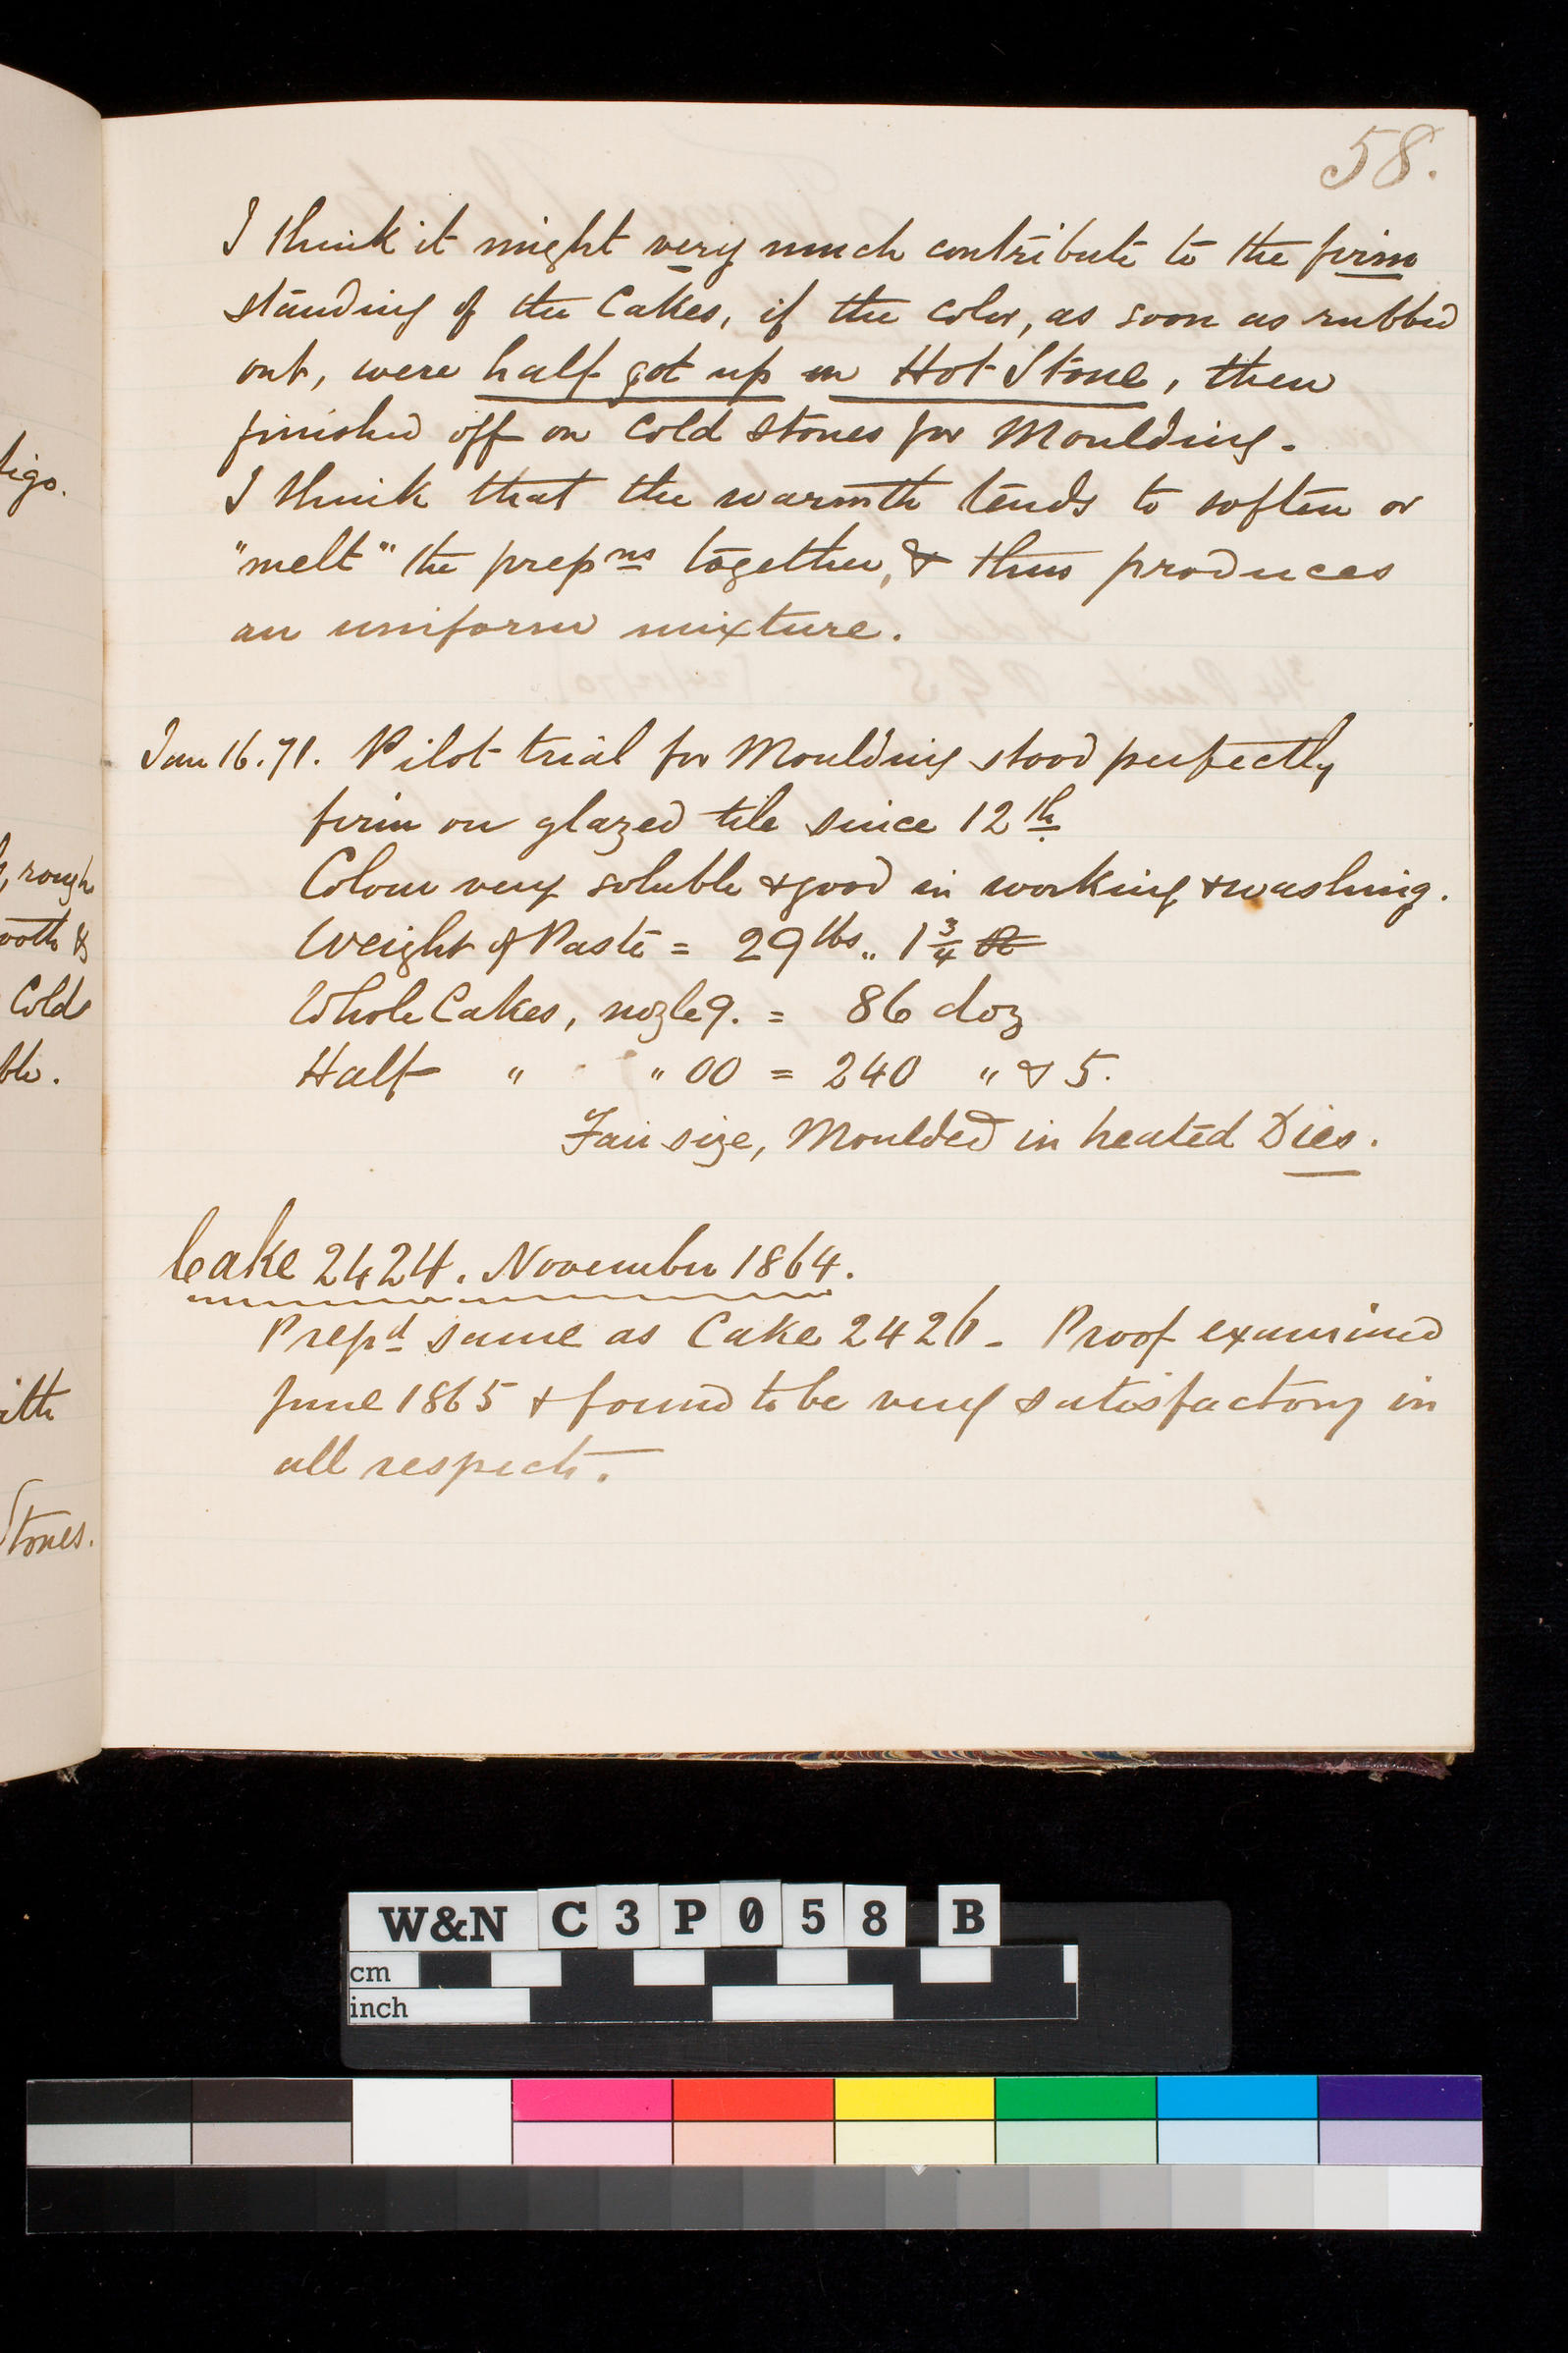 58.
I think it might very much contribute to the firm
standing of the Cakes, if the color, as soon as rubbed
out, were half got up on Hot Stone, then
finished off on Cold Stones for Moulding.
I think that the warmth tends to soften or
"melt" the prepns together, & thus produces
an uniform mixture.
Jan 16. 71. Pilot trial for Moulding stood perfectly
firm on glazed tile since 12th
Colour very soluble & good in working & washing.
Weight of Paste = 29 lbs.. 1 3/4
Whole Cakes, nozle 9. = 86 doz
Half " " 00 = 240 " & 5.
Fair size, Moulded in heated Dies.
Cake 2424. November 1864.
Prepd same as Cake 2426 - Proof examined
June 1865 & found to be very satisfactory in
all respects.
igo.
, rough
Cold
ble.
ith
Stones.
W&N C3P058 B
cm
inch